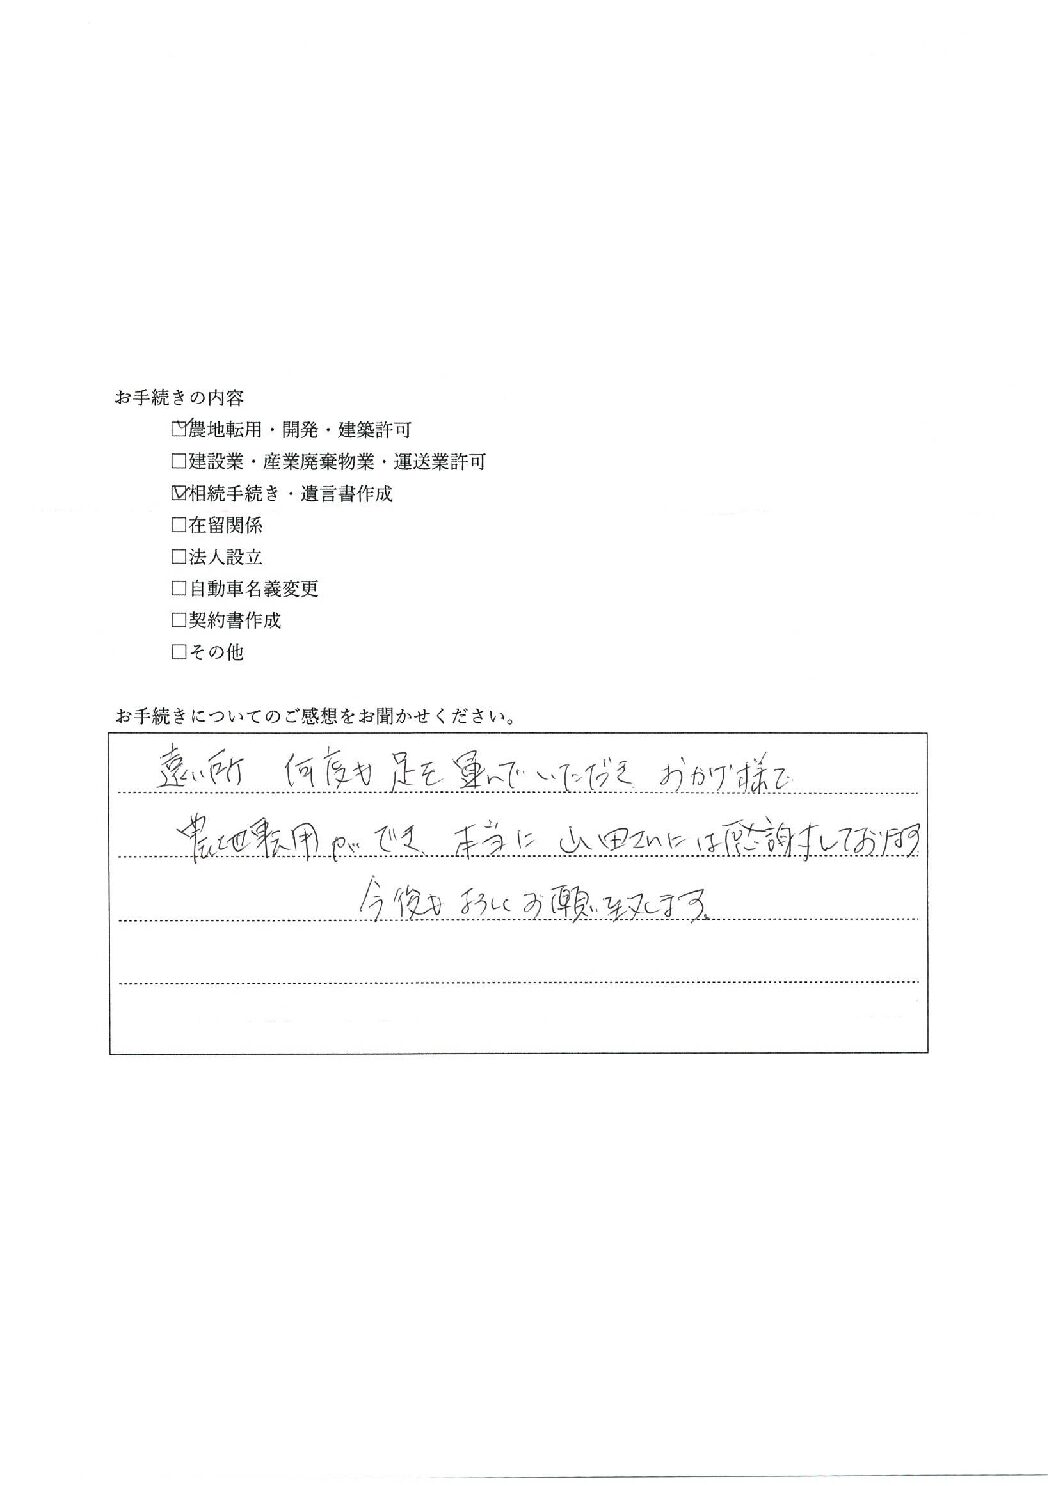 お手続きの内容
☑農地転用・開発・建築許可
□建設業・産業廃棄物業・運送業許可
☑相続手続き・遺言書作成
□在留関係
□法人設立
□自動車名義変更
□契約書作成
□その他
お手続きについてのご感想をお聞かせください。
遠い所 何度も足を運んでいただき おかげ様で
農地転用ができ、本当に 山田さんには感謝しております
今後もよろしくお願い致します。